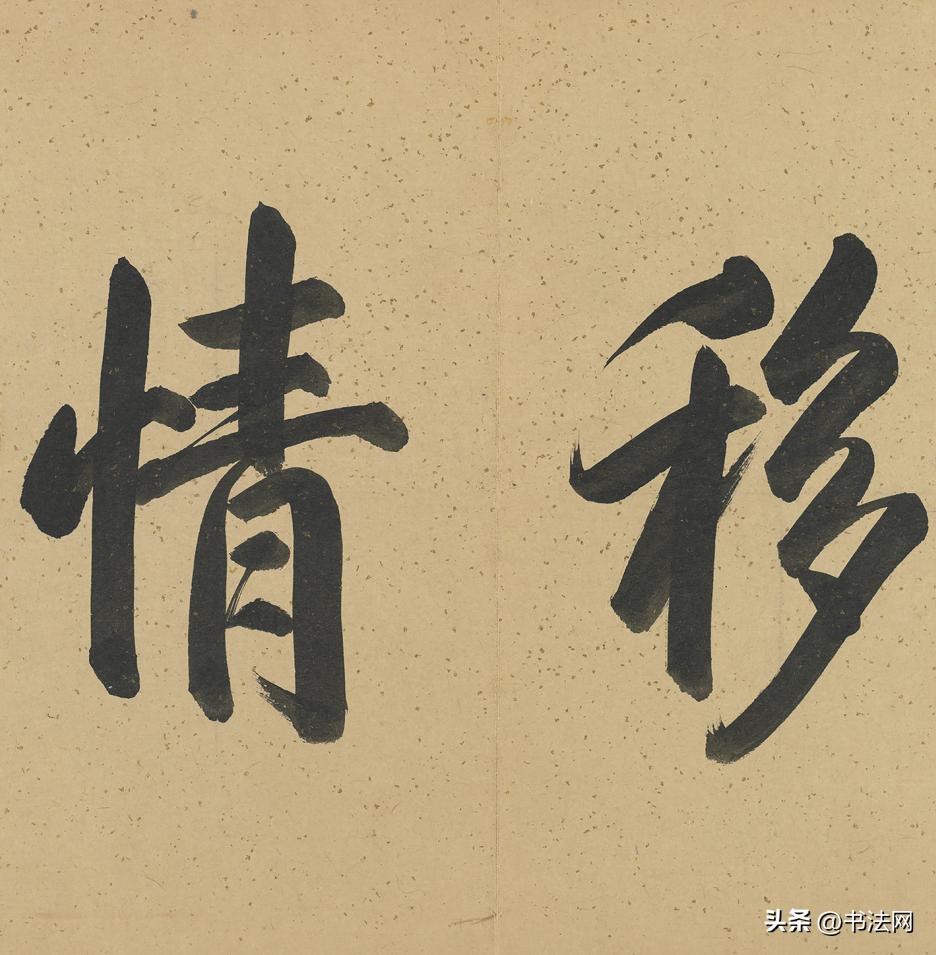 移情
头条 @书法网